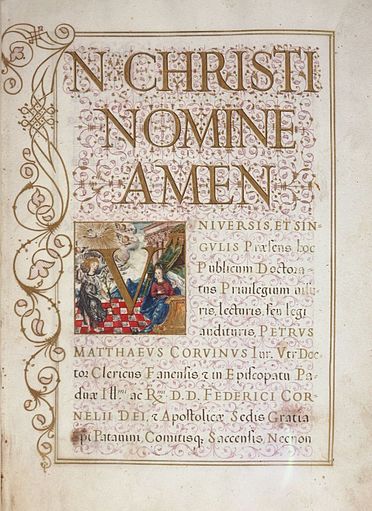 N CHRISTI
NOMINE
AMEN
VNIVERSIS, ET SIN
GVLIS Præsens hoc
Publicum Doctora-
tus Priuilegium uisu-
ris, lecturis, seu legi
audituris, PETRVS
MATTHAEVS CORVINVS Iur. Vtr Doc
tor Clericus Fanensis & in Episcopatu Pa
duæ Illmi ac Rmi D. D. FEDERICI COR
NELII DEI, & Apostolicæ Sedis Gratia
Epi Patauini, Comitisq; Saccensis, Necnon